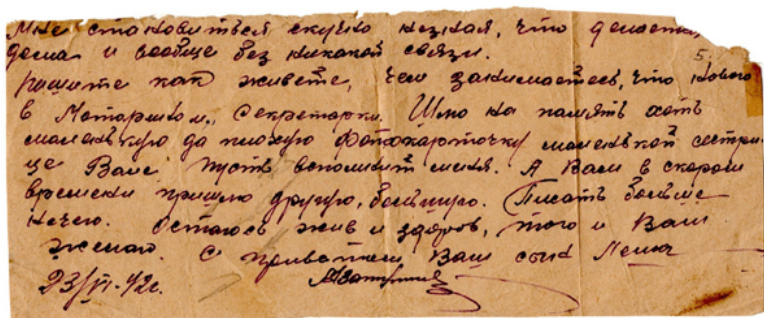 Мне становиться скучно незная, что делается
дома и вообще без никакой связи.
5
пишите как живете, чем занимаетесь, что нового
в Секретарки. Шлю на память хоть
маленькую да плохую фотокарточку маленькой сестри-
це Вале. пусть вспомнит меня. А Вам в скором
времени пришлю другую, большую. Писать больше
нечего. Остаюсь жив и здоров, того и Вам
желаю. С приветом Ваш сын Леша
23/VI-42г.